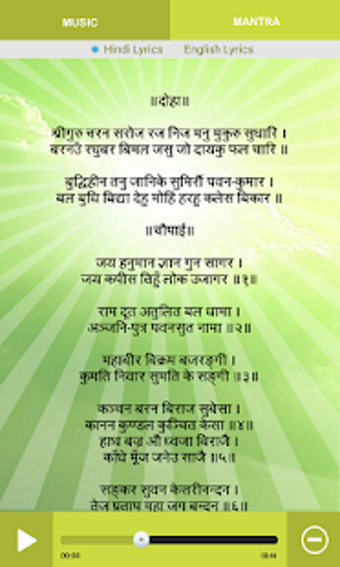 MUSIC
MANTRA
Hindi Lyrics
English Lyrics
॥दोहा॥
श्रीगुरु चरन सरोज रज निज मनु मुकुरु सुधारि ।
बरनउँ रघुबर बिमल जसु जो दायकु फल चारि ॥
बुद्धिहीन तनु जानिके सुमिरौं पवन-कुमार ।
बल बुधि बिद्या देहु मोहिं हरहु कलेस बिकार ॥
॥चौपाई॥
जय हनुमान ज्ञान गुन सागर ।
जय कपीस तिहुँ लोक उजागर ॥१॥
राम दूत अतुलित बल धामा ।
अञ्जनि-पुत्र पवनसुत नामा ॥२॥
महाबीर बिक्रम बजरङ्गी ।
कुमति निवार सुमति के सङ्गी ॥३॥
कञ्चन बरन बिराज सुबेसा ।
कानन कुण्डल कुञ्चित केसा ॥४॥
हाथ बज्र औ ध्वजा बिराजै ।
काँधे मूँज जनेउ साजै ॥५॥
सङ्कर सुवन केसरीनन्दन ।
तेज प्रताप महा जग बन्दन ॥६॥
00:00